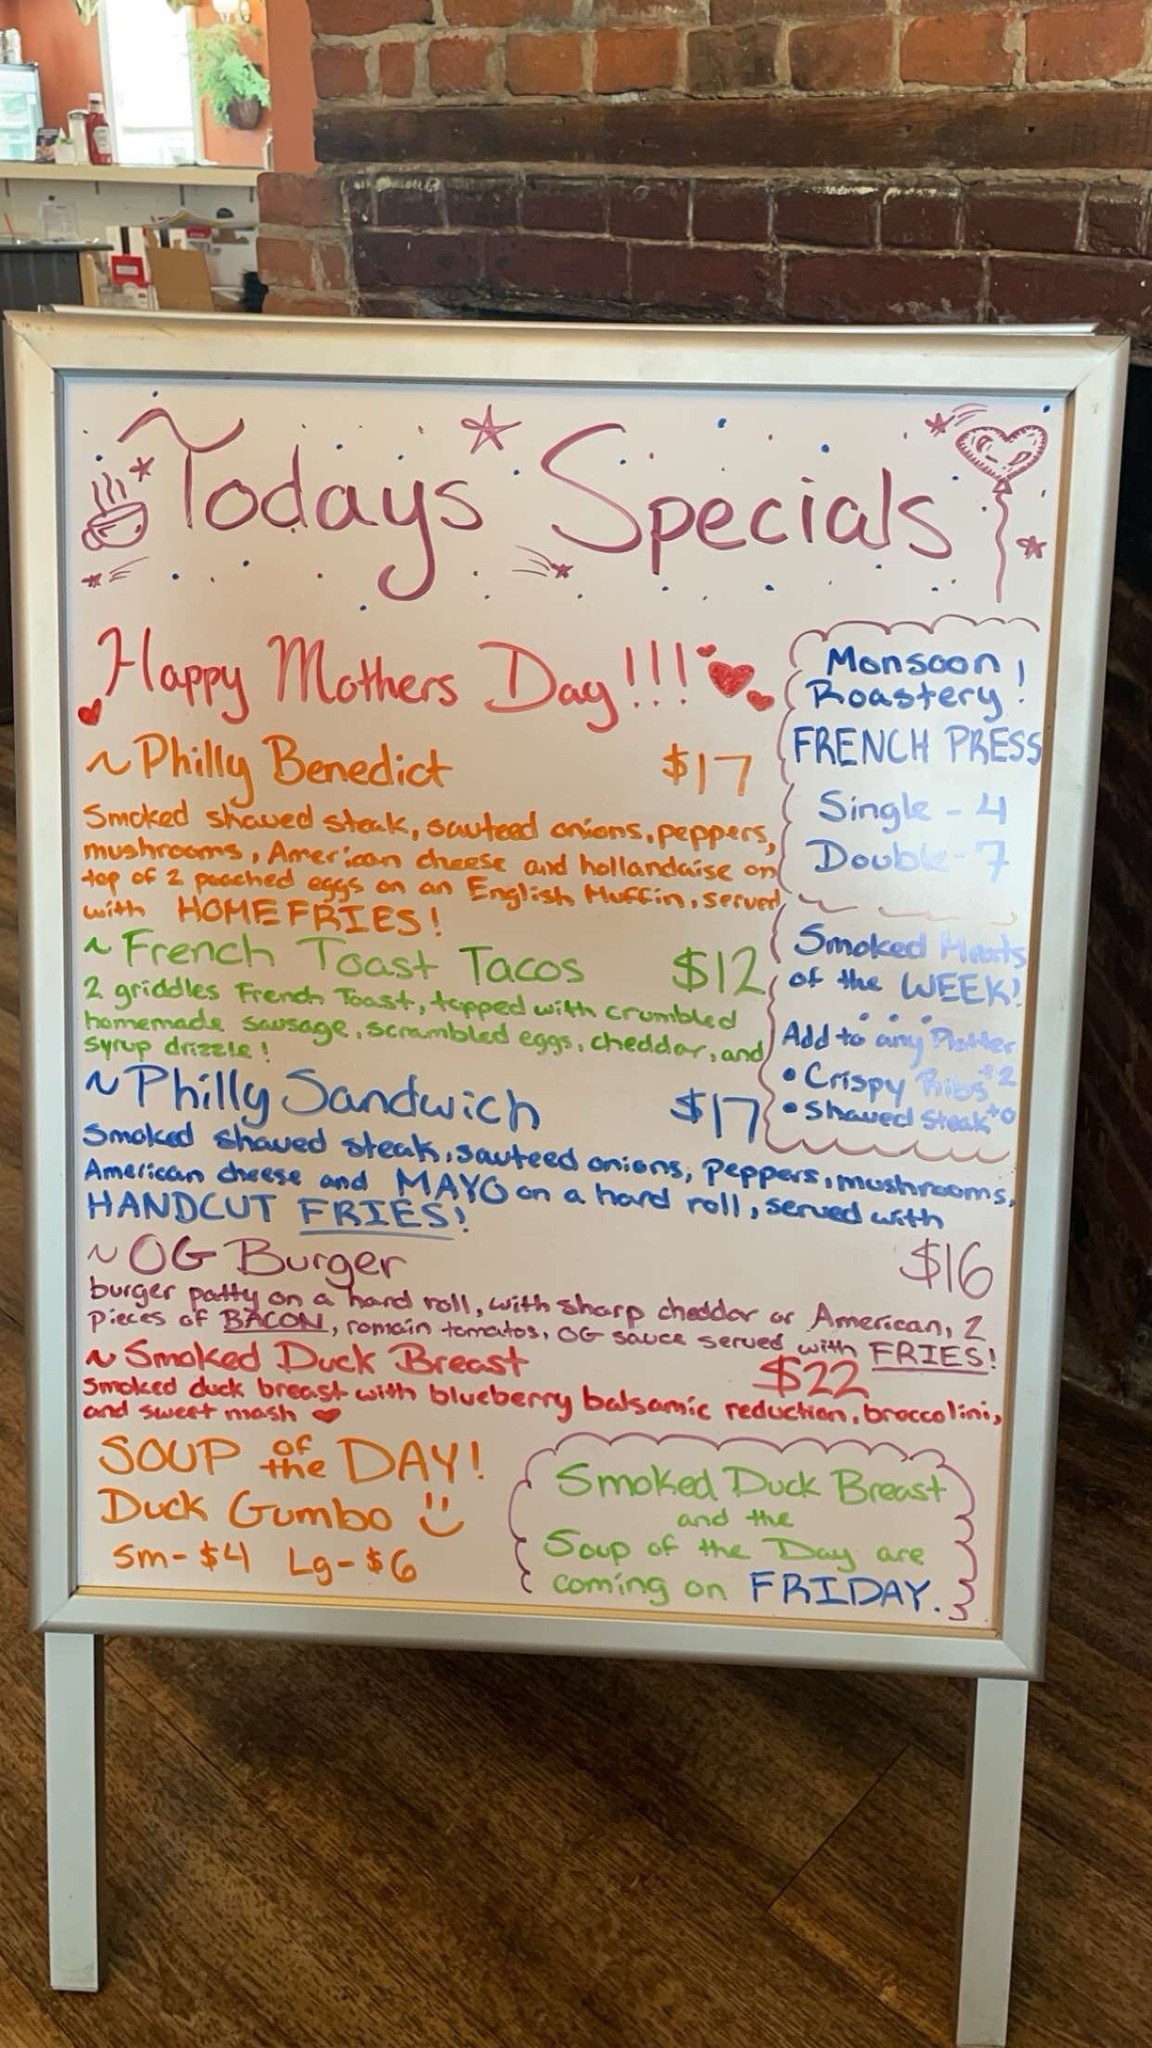 Todays Specials
Happy Mothers Day!!!
~ Philly Benedict $17
Smoked shaved steak, sauteed onions, peppers,
mushrooms, American cheese and hollandaise on
top of 2 poached eggs on an English Muffin, served
with HOMEFRIES!
~ French Toast Tacos $12
2 griddles French Toast, topped with crumbled
homemade sausage, scrambled eggs, cheddar, and
syrup drizzle!
~ Philly Sandwich $17
Smoked shaved steak, sauteed onions, peppers, mushrooms,
American cheese and MAYO on a hard roll, served with
HANDCUT FRIES!
~ OG Burger $16
burger patty on a hard roll, with sharp cheddar or American, 2
pieces of BACON, romain tomatos, OG sauce served with FRIES!
~ Smoked Duck Breast $22
Smoked duck breast with blueberry balsamic reduction, broccolini,
and sweet mash
SOUP of the DAY!
Duck Gumbo
Sm-$4 Lg-$6
Monsoon
Roastery!
FRENCH PRESS
Single - 4
Double - 7
Smoked Meats
of the WEEK!
Add to any Platter
• Crispy Ribs +2
• Shaved Steak +0
Smoked Duck Breast
and the
Soup of the Day are
coming on FRIDAY.